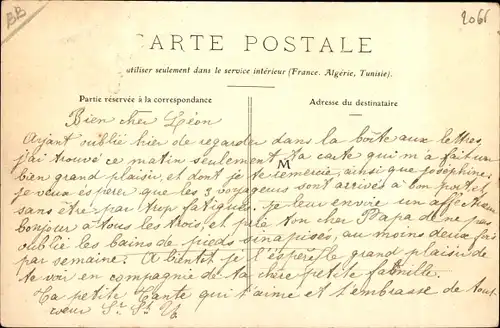 BB
2066
CARTE POSTALE
utiliser seulement dans le service intérieur (France, Algérie, Tunisie).
Partie réservée à la correspondance
Adresse du destinataire
M
Bien cher Léon
Ayant oublié hier de regarder dans la boîte aux lettres,
j'ai trouvé ce matin seulement ta carte qui m'a fait un
bien grand plaisir, et dont je te remercie, ainsi que Joséphine.
je veux espérer que les 3 voyageurs sont arrivés à bon port et
sans être par trop fatigués. Je leur envoie un affectueux
bonjour à tous les trois, et prie ton cher Papa de ne pas
oublier les bains de pieds sinapisés, au moins deux fois
par semaine. A bientôt je l'espère le grand plaisir de
te voir en compagnie de ta chère petite famille.
Ta petite Tante qui t'aime et t'embrasse de tout
coeur